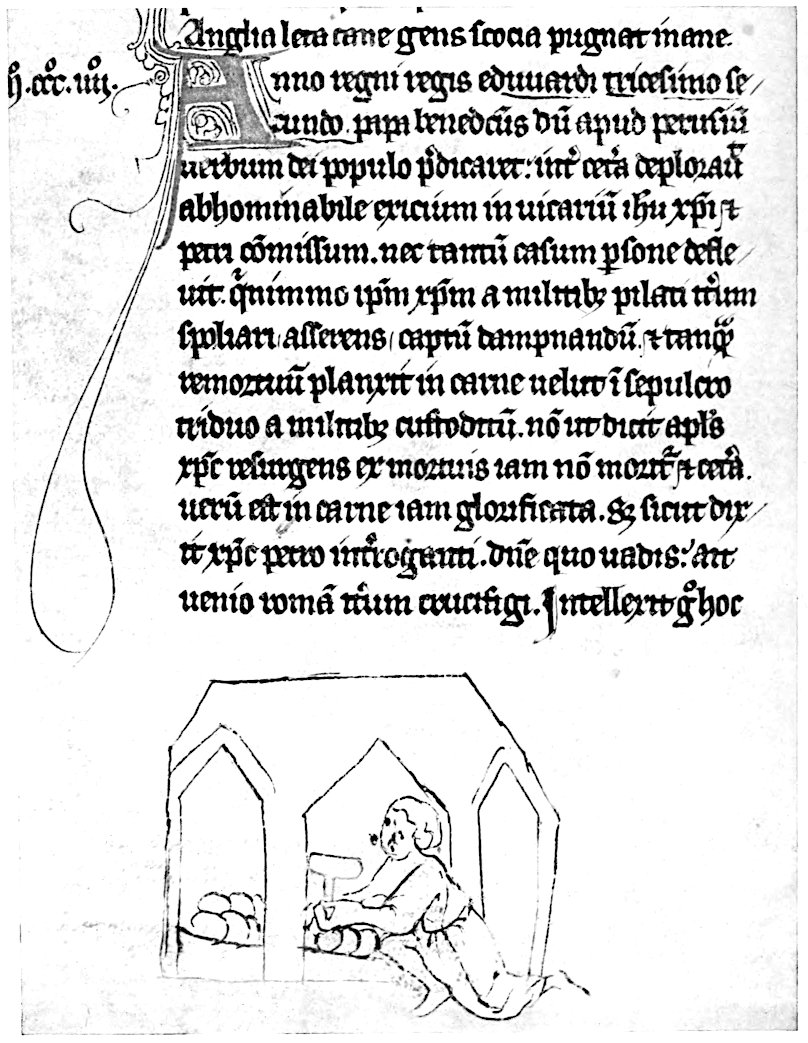 Anglia leta cane gens scocia pugnat inane.
.cccͦ.iiijͦ.
Anno regni regis eduuardi tricesimo se/
cundo. papa bened̄cūs dū apud perusiū
uerbum dei populo p̄dicaret: int̓ cet̓a deplorauͬ
abhominabile exicium in uicariū ih̄u xp̄i ⁊
petri cōmissum. nec tantū casum ꝑsone defle/
uit. qͥnimmo ip̄m xp̄m a militibꝫ pilati it̓um
spoliari asserens captū dampnandū. ⁊ tanqͣꝫ
remortuū planxit in carne uelut ī sepulcro
triduo a militibꝫ custoditū. nō ut dicit apl̓s
xp̄c resurgens ex mortuis iam nō moritͬ ⁊ cet̓a.
uerū est in carne iam glorificata. sꝫ sicut dix/
it xp̄c petro int̓roganti. dn̄e quo uadis: ait
uenio romā it̓um crucifigi. Intellexit gͦ hoc